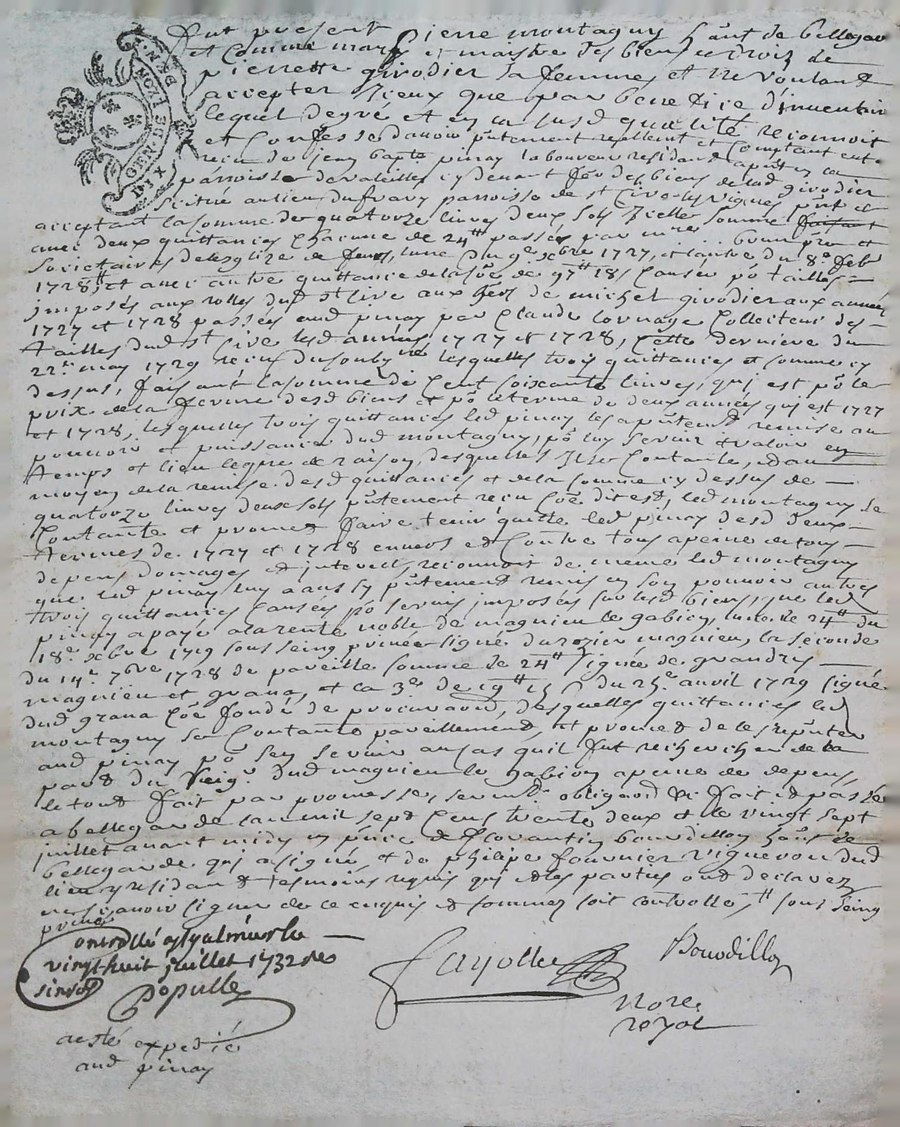 GEN. DE LYON
DIX
Fut present Pierre montagny habt de bellegarde
et comme mary et maistre des biens et droits de
pierrette givodier sa femme et ne voulant
accepter Iceux que par benefice d'inventaire
lequel degré et en la susd qualité reconnoit
et Confesse d'avoir putement reellement et comptant
receu de jean bapte pinay laboureur residant apnt en la
parroisse de valeilles cy devant fer des biens dud givodier
situé au lieu du fvavy parroisse de st Cire les vignes pnt et
acceptant la somme de quatorze livres deux sols Icelle somme
avec deux quittances chacune de 24tt passées par mre bvun pre et
societaires de leglise de feurs, lune du 9e xbre 1727, et lautre du 8e feb
1728, et avec autre quittance de la sōe de 97tt 18s causée pō tailles
imposés aux rolles dud st Cire aux heós de michel givodier aux années
1727 et 1728 passées aud pinay par Claude Collecteur des
tailles dud st Cire lesd années 1727 et 1728, cette derniere du
22e may 1729 lesquelles trois quittances et somme cy
dessus, faisant la somme de cent soixante livres, qui est pō le
prix de la ferme desd biens et pō le terme de deux années qui est 1727
et 1728, lesquelles trois quittances led pinay les a putemt remise au
pouvoir et puissance dud montagny, pō luy servir et valoir en
temps et lieu ce que de raison, desquelles Il se Contante, et au
moyen de la remise desd quittances et de la somme cy dessus de
quatorze livres deux sols putement receu Cōe dit est, led montagny se
Contante et promet faire tenir quitte led pinay desd deux
termes de 1727 et 1728 envers et Contre tous a peine de tous
depens domages et interests, reconnoit de meme led montagny
que led pinay luy a aussy putement remis en son pouvoir autres
trois quittances causées pō servis imposés sur lesd biens, que led
pinay a payé a la rente noble de magnieu le gabion, une de 24tt du
18e xbre 1719 sous seing privée signé durozier magnieu, la seconde
du 14e 7bre 1728 de pareille somme de 24tt signée de grandris
magnieu et grana, et la 3e de 19tt 15s du 25e avril 1729 signé
dud grana Cōe fondé de procuraōn, desquelles quittances led
montagny se Contante pareillement, et promet de les reputer
aud pinay pō sen servir au cas quil fut rechercher de la
part du seigr dud magnieu le gabion a peine de depens,
le tout fait par promesse, sermt obligaōn &c fait et passé
a bellegarde lan mil sept Cens trente deux et le vingt sept
juillet avant midy en pnce de florantin bourdillon habt de
bellegarde qui a signé, et de philipe fournier vigneron dud
lieu y residant tesmoins requis qui et les parties ont declarez
ne sçavoir signer de ce enquis et sommez soit controllé, sous seing
privé
Controllé a st galmier le
vingt huit juillet 1732 re
six sols
Populle
Fayolle
Bourdillon
Nore
royal
a esté expedié
aud pinay